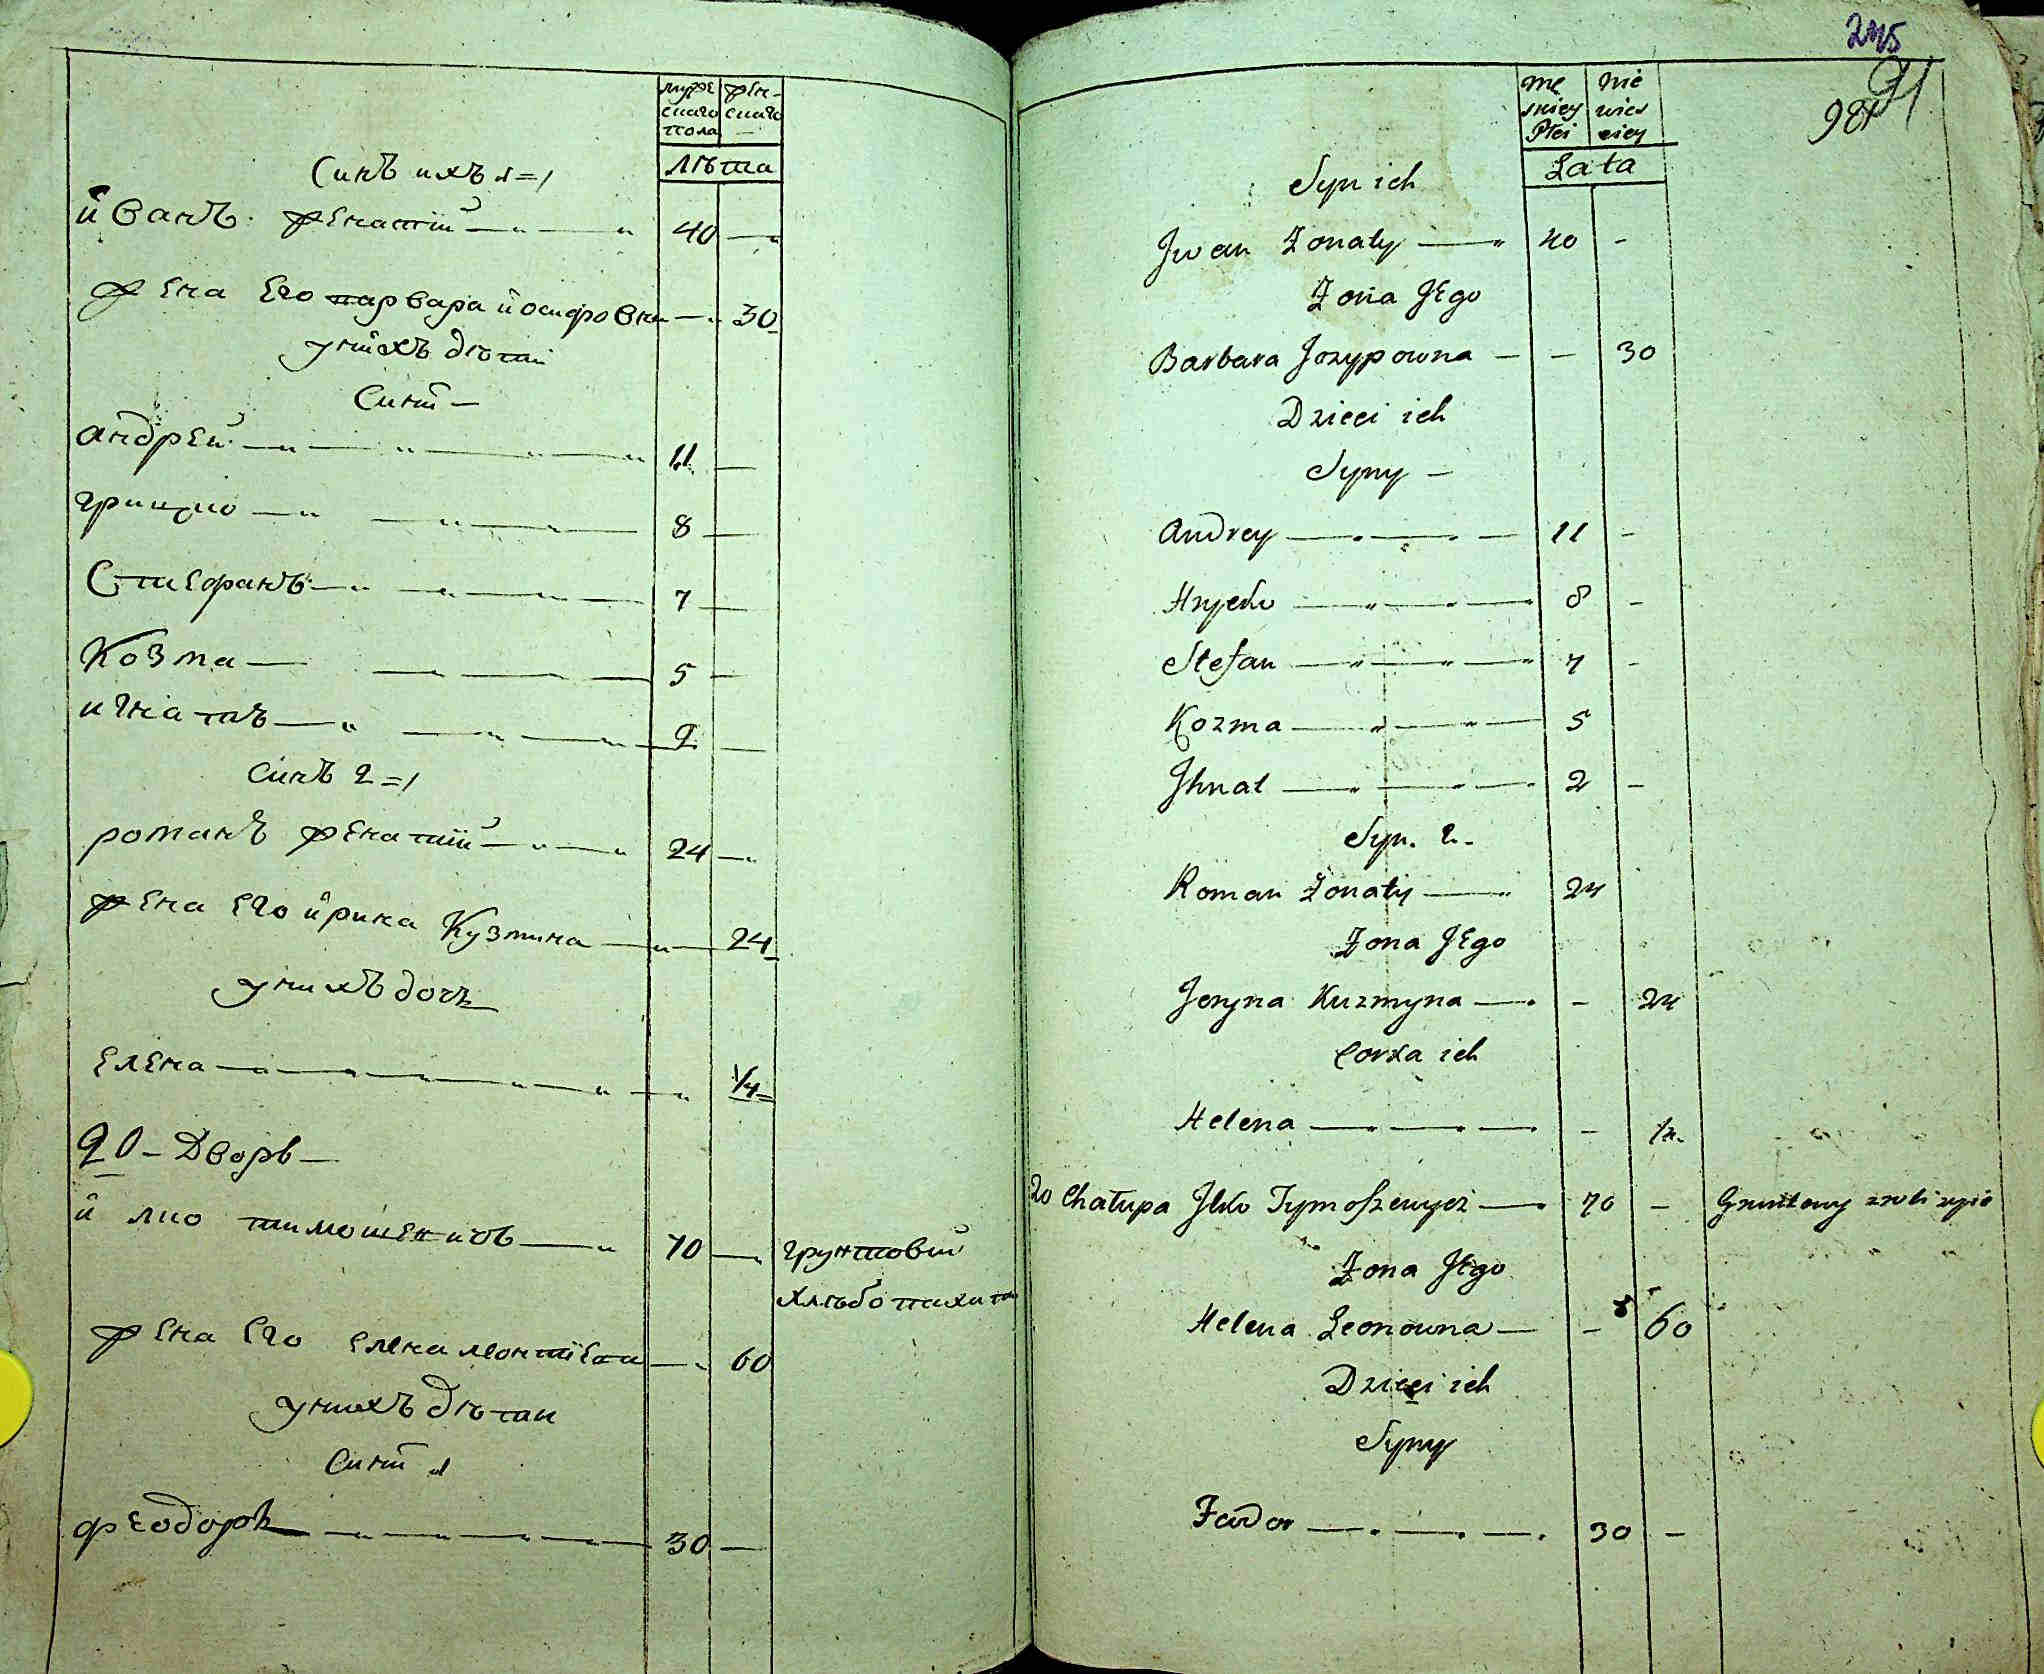 муже
скаго
пола
жен-
скаго
лѣта
Синъ ихъ 1=й
иванъ женатій 40
жена его варвара иосифовна 30
унихъ дѣти
Сині
андрей 11
грицко 8
Стефанъ 7
Козма 5
игнатъ 2
синъ 2=й
романъ женатій 24
жена его ирина Кузмина 24
унихъ дочь
елена 1/4
20 - Дворъ
илко тимошевичъ 70 грунтовій
хлѣбопашец
жена его елена 60
унихъ дѣти
Сині 1
феодоръ 30
245
91
981
Mę
skiey
Płci
Nie
wies
ciey
Lata
Syn ich
Jwan Żonaty 40 -
Żona Jego
Barbara Jozypowna - 30
Dzieci ich
Syny
Andrey 11 -
Hrycko 8 -
Stefan 7 -
Kozma 5
Jhnat 2 -
Syn. 2.
Roman Żonaty 24
Żona Jego
Jeryna Kuzmyna - 24
Corka ich
Helena - 1/4.
20 Chałupa Jlko Tymoszewycz 70 - Gruntowy
Żona Jego
Helena Leonowna - 60
Dzieci ich
Syny
Fedor 30 -